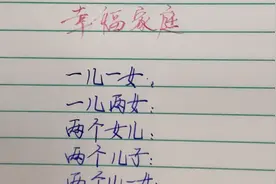 幸福家庭
一儿一女，
一儿两女：
两个女儿：
两个儿子：
两个儿一女：